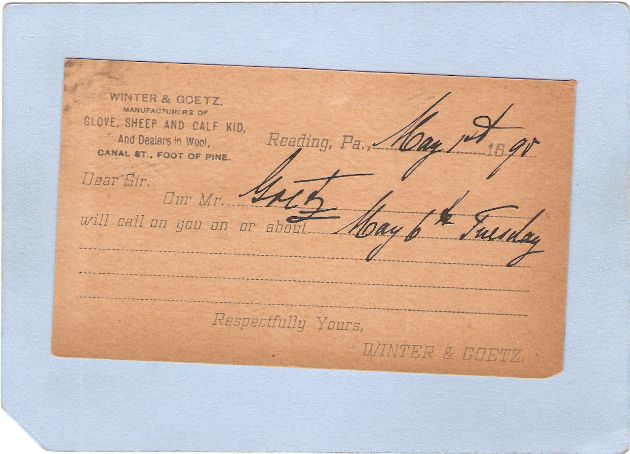 WINTER & GOETZ.
MANUFACTURERS OF
GLOVE, SHEEP AND CALF KID,
And Dealers in Wool,
CANAL ST., FOOT OF PINE.
Reading, Pa., May 1st 1890
Dear Sir:
Our Mr. Goetz
will call on you on or about May 6th Tuesday
Respectfully Yours,
WINTER & GOETZ.